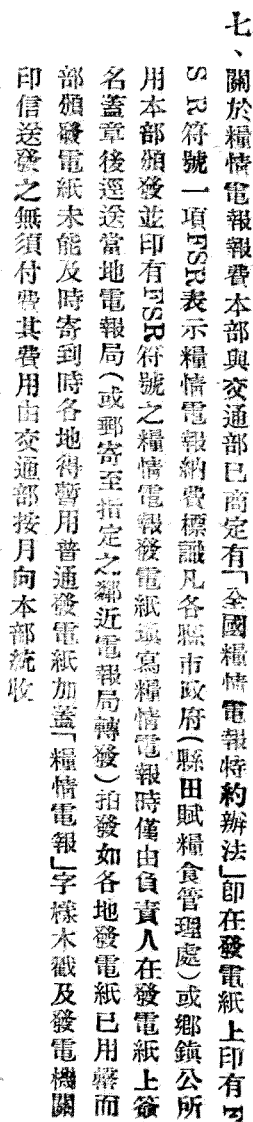 七、關於糧情電報報費本部與交通部已商定有「全國糧情電報特約辦法」卽在發電紙上印有F
SR符號一項FSR表示糧情電報納費標識凡各縣市政府(縣田賦糧食管理處)或鄉鎮公所
用本部頒發並印有FSR符號之糧情電報發電紙塡寫糧情電報時僅由負責人在發電紙上簽
名蓋章後逕送當地電報局(或郵寄至指定之鄰近電報局轉發)拍發如各地發電紙已用罄而
部頒發電紙未能及時寄到時各地得暫用普通發電紙加蓋「糧情電報」字樣木戳及發電機關
印信送發之無須付費其費用由交通部按月向本部統收